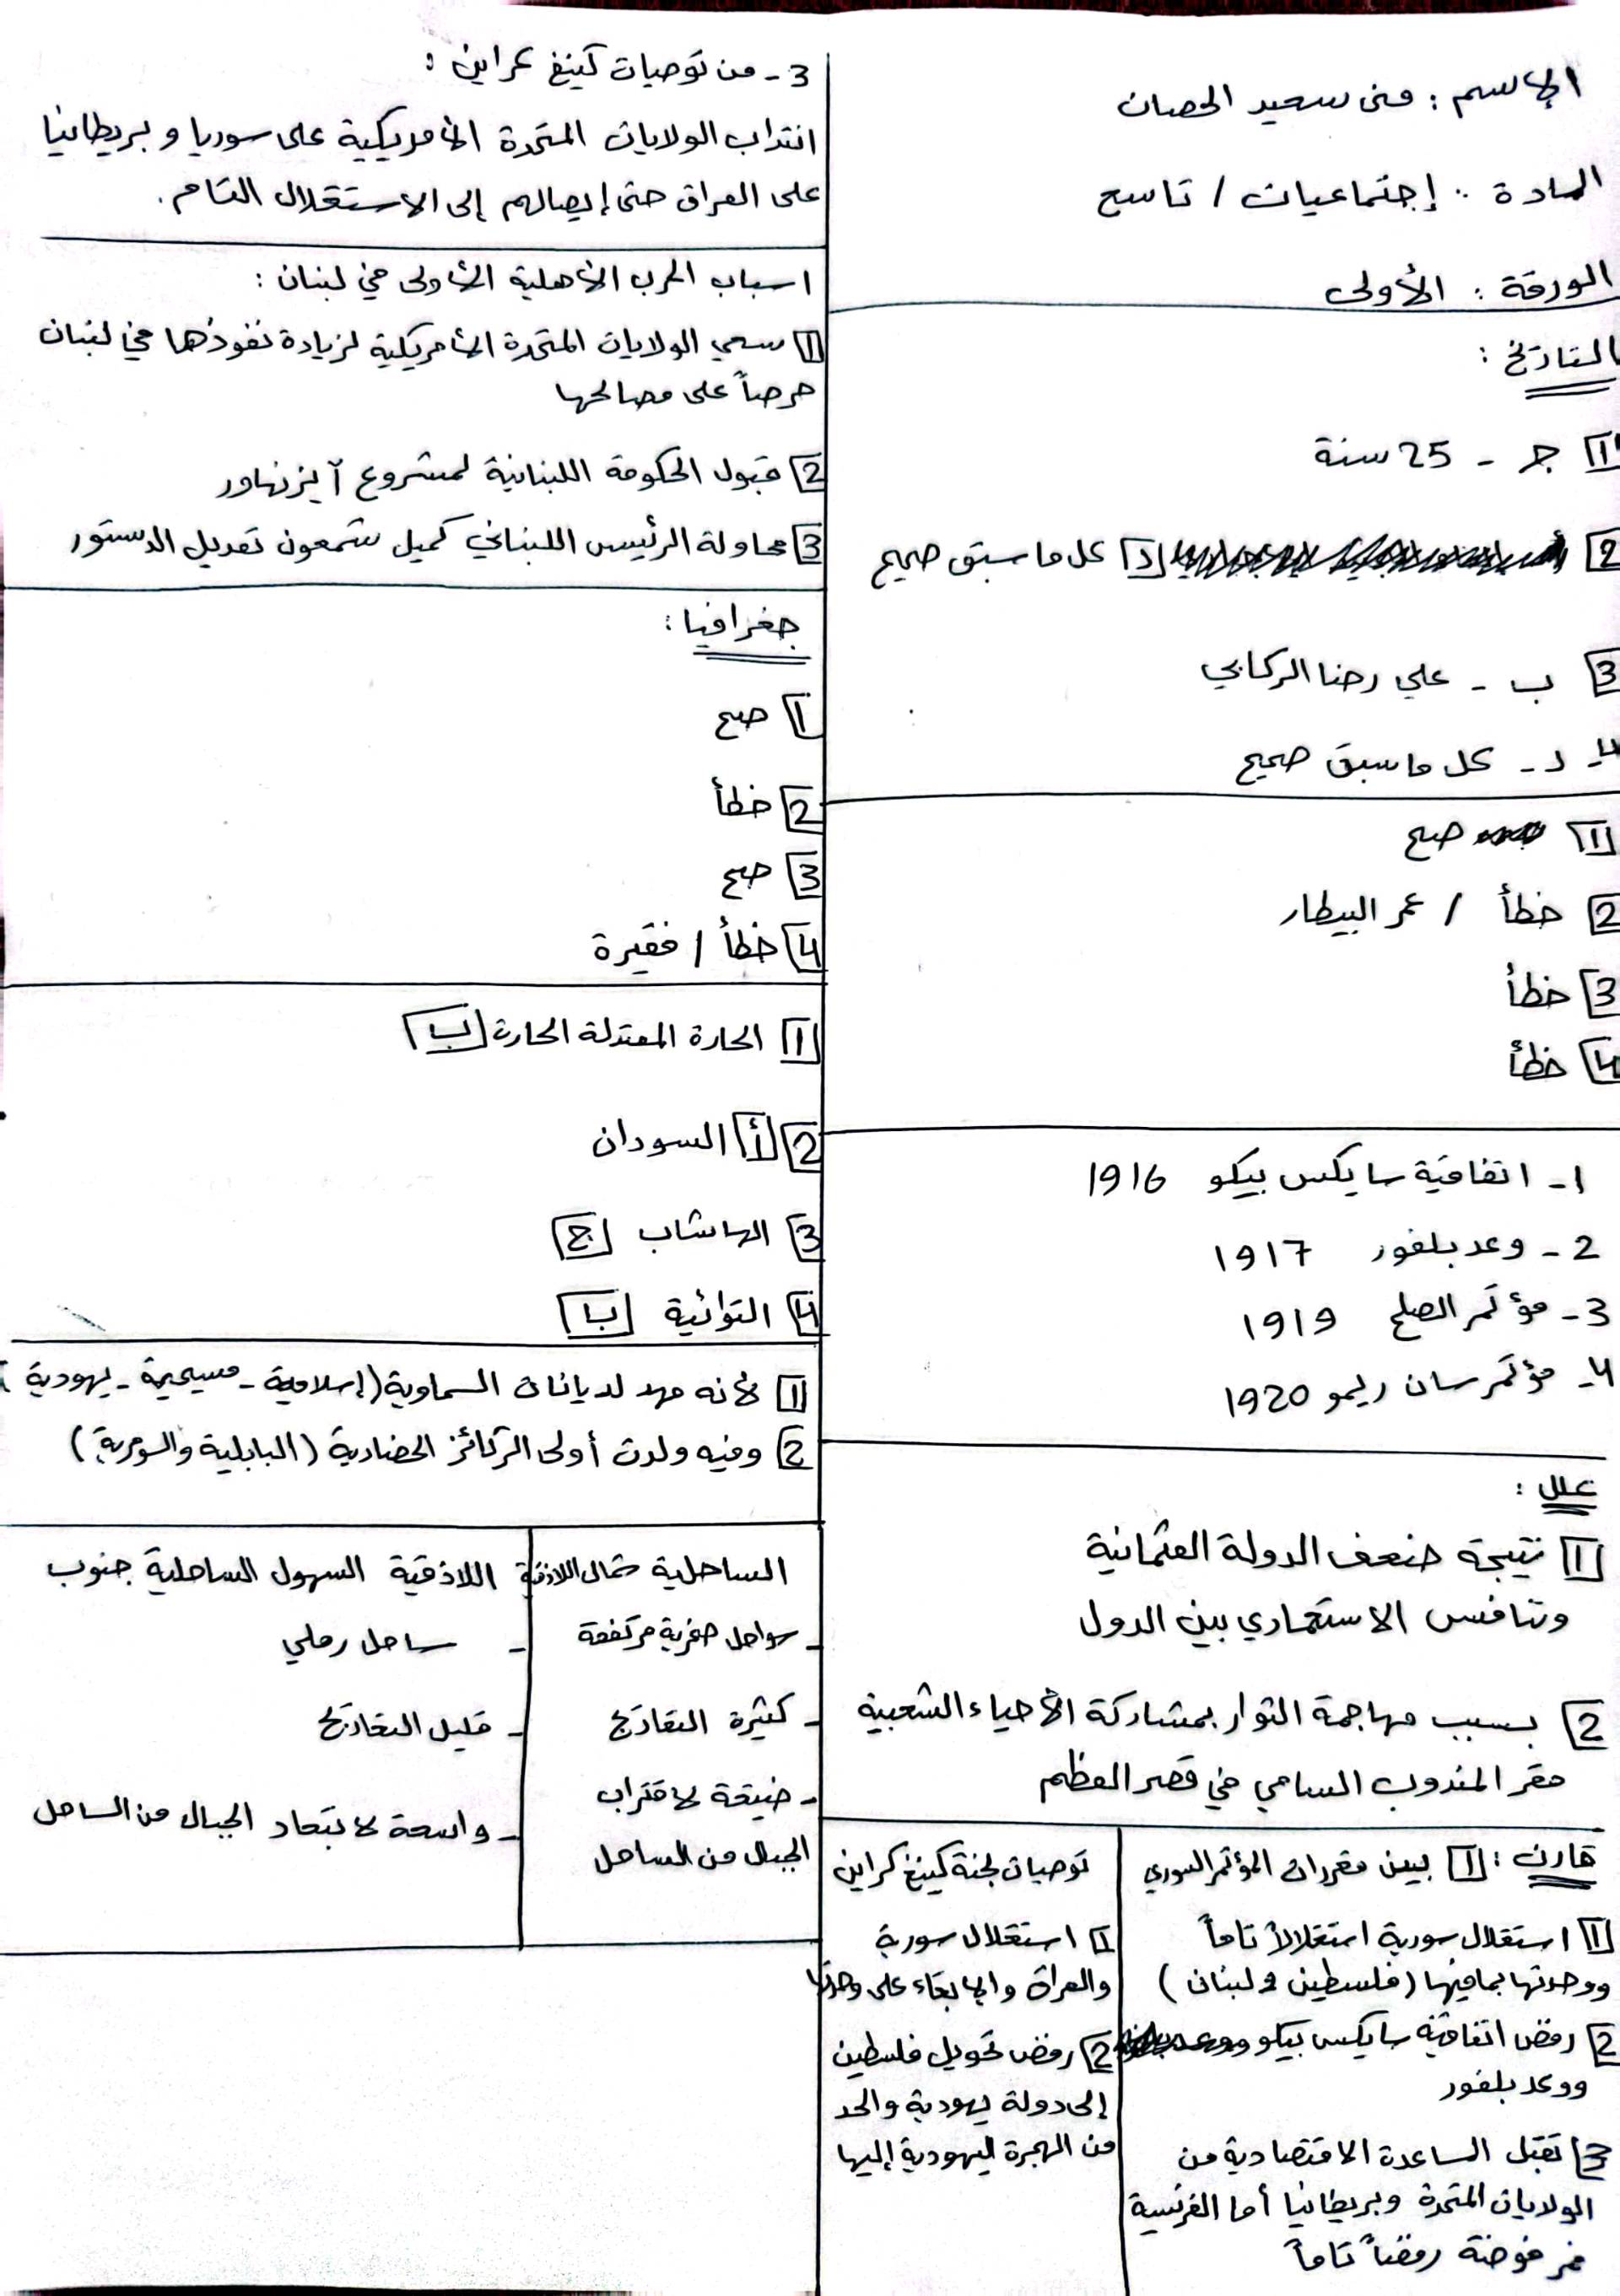 الإسم : منى سعيد الحصان
المادة : إجتماعيات / تاسع
الورقة : الأولى
التاريخ :
1 ج - 25 سنة
2 د كل ما سبق صحيح
3 ب - علي رضا الركابي
4- د - كل ما سبق صحيح
1 صح
2 خطأ / عمر البيطار
3 خطأ
4 خطأ
1- اتفاقية سايكس بيكو 1916
2- وعد بلفور 1917
3- مؤتمر الصلح 1919
4- مؤتمر سان ريمو 1920
علل :
1 نتيجة ضعف الدولة العثمانية
وتنافس الاستعماري بين الدول
2 بسبب مهاجمة الثوار بمشاركة الأحياء الشعبية
مقر المندوب السامي في قصر العظم
قارن : 1 بين مقررات المؤتمر السوري
1 استقلال سورية استقلالاً تاماً
ووحدتها بما فيها (فلسطين و لبنان)
2 رفض اتفاقية سايكس بيكو
ووعد بلفور
3 تقبل الساعدة الاقتصادية من
الولايات المتحدة وبريطانيا أما الفرنسية
مرفوضة رفضاً تاماً
توصيات لجنة كينغ كراين
1 استقلال سورية
والعراق والإبقاء على وحدتها
2 رفض تحويل فلسطين
إلى دولة يهودية والحد
من الهجرة اليهودية إليها
3- من توصيات كينغ كراين :
انتداب الولايات المتحدة الأمريكية على سوريا و بريطانيا
على العراق حتى إيصالهم إلى الاستقلال التام.
اسباب الحرب الأهلية الأولى في لبنان :
1 سعي الولايات المتحدة الأمريكية لزيادة نفوذها في لبنان
حرصاً على مصالحها
2 قبول الحكومة اللبنانية لمشروع آيزنهاور
3 محاولة الرئيس اللبناني كميل شمعون تعديل الدستور
جغرافيا :
1 صح
2 خطأ
3 صح
4 خطأ / فقيرة
1 الحارة المعتدلة الحارة ب
2 أ السودان
3 الهاشاب ج
4 التوائية ب
1 لأنه مهد لديانات السماوية (إسلامية - مسيحية - يهودية)
2 وفيه ولدت أولى الركائز الحضارية (البابلية والسومرية)
الساحلية شمال اللاذقية
- سواحل صخرية مرتفعة
- كثيرة التعاريج
- ضيقة لاقتراب
الجبال من الساحل
اللاذقية السهول الساحلية جنوب
- ساحل رملي
- قليل التعاريج
- واسعة لابتعاد الجبال من الساحل